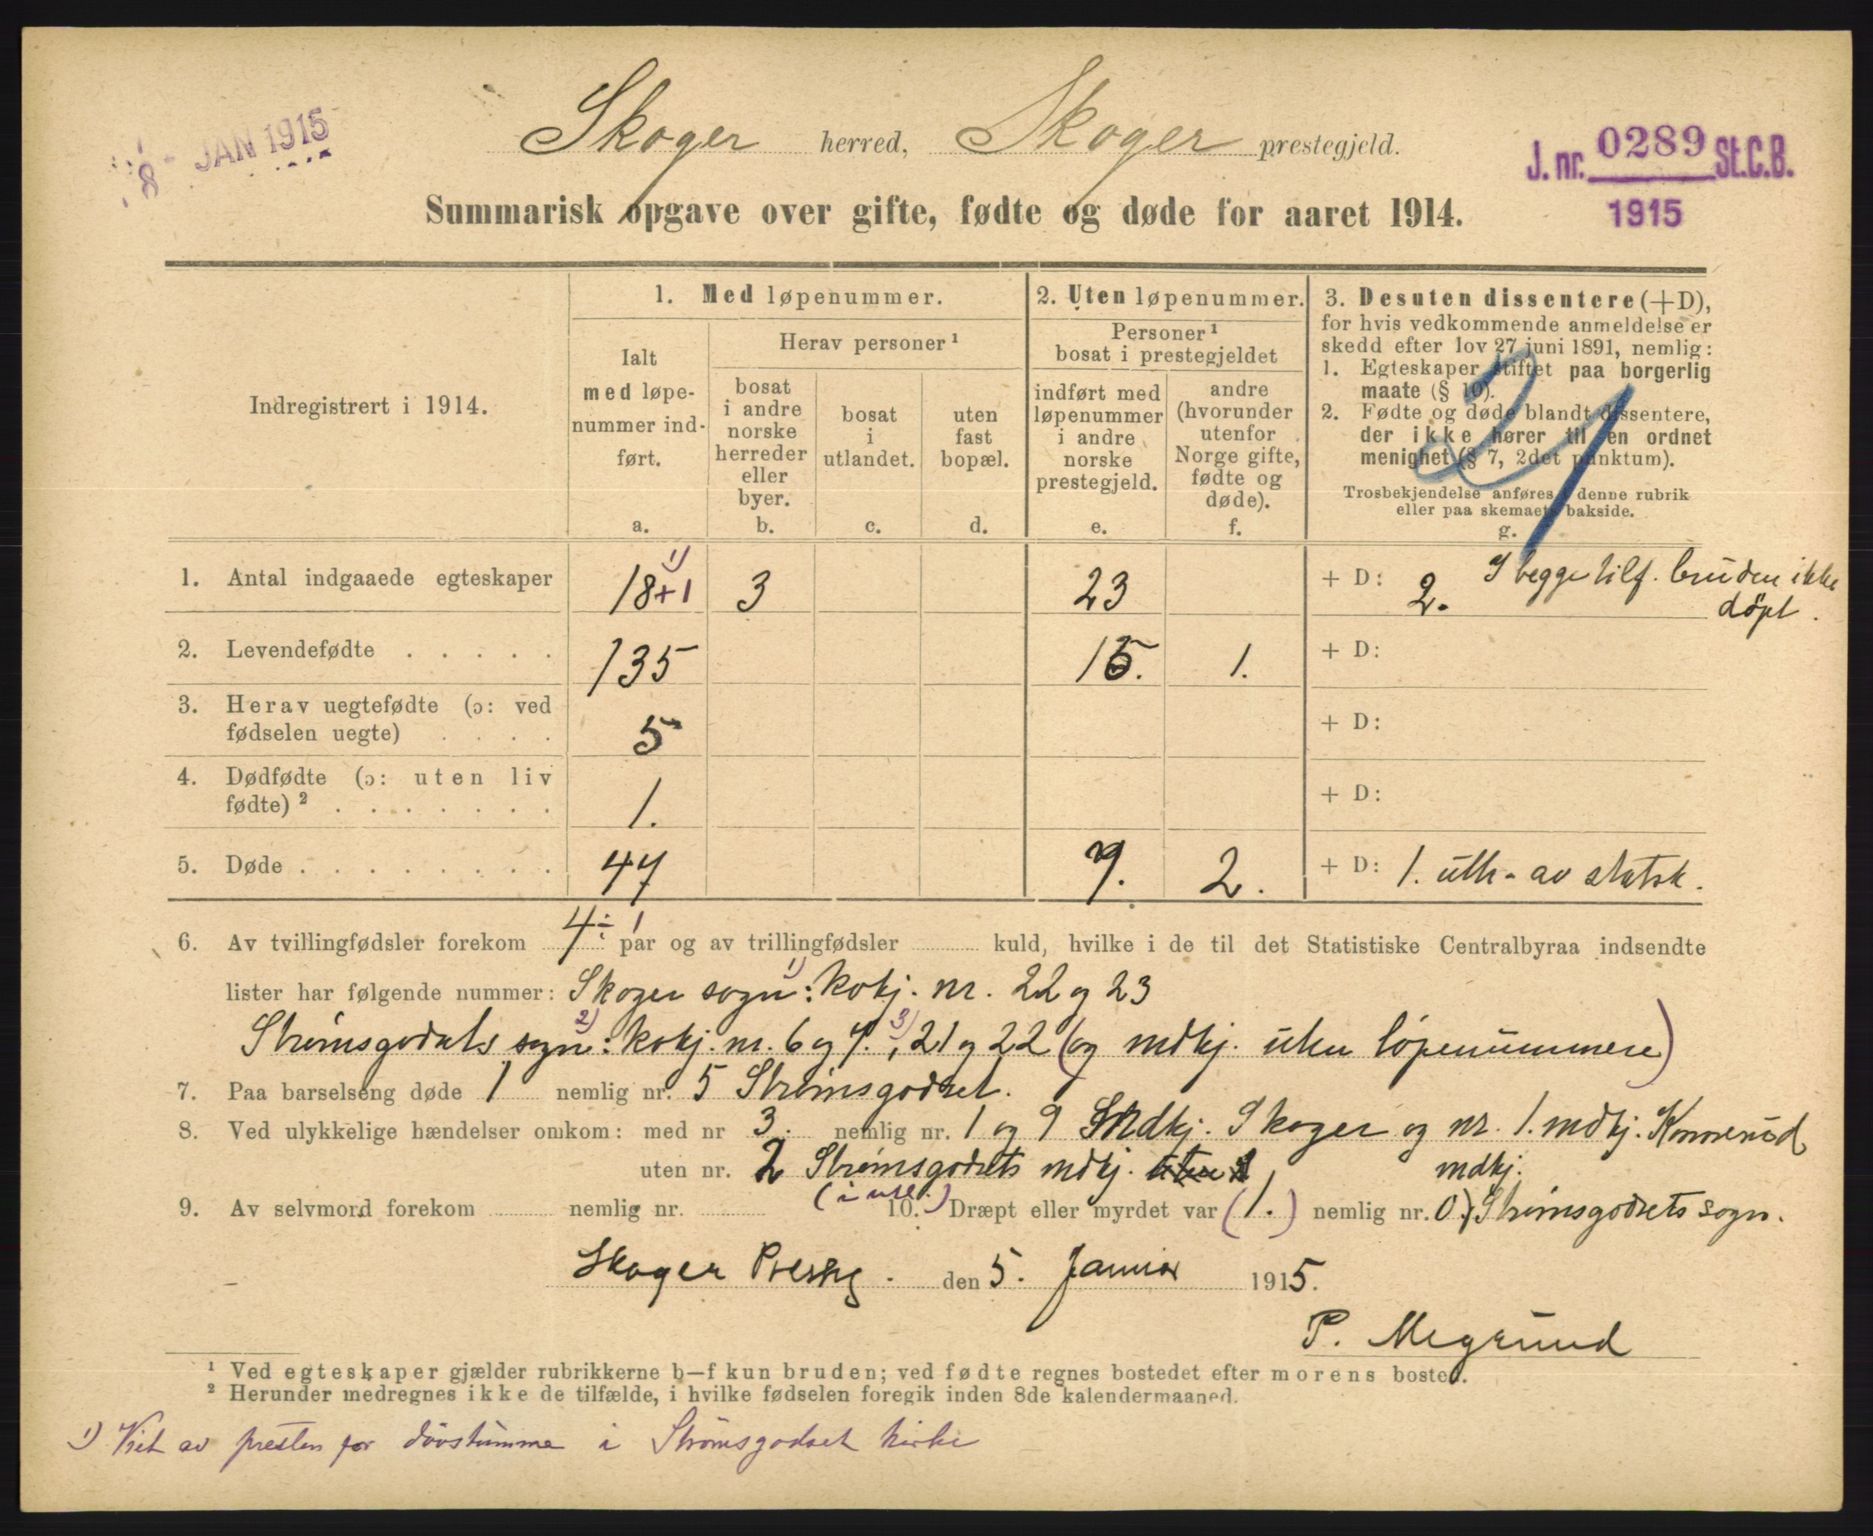 8 - JAN 1915
Skoger herred, Skoger prestegjeld.
J. nr. 0289 St.C.B.
1915
Summarisk opgave over gifte, fødte og døde for aaret 1914.
Indregistrert i 1914.
1. Med løpenummer.
Ialt
med løpe-
nummer ind-
ført.
a.
Herav personer ¹
bosat
i andre
norske
herreder
eller
byer.
b.
bosat
i
utlandet.
c.
uten
fast
bopæl.
d.
2. Uten løpenummer.
Personer ¹
bosat i prestegjeldet
indført med
løpenummer
i andre
norske
prestegjeld.
e.
andre
(hvorunder
utenfor
Norge gifte,
fødte og
døde).
f.
3. Desuten dissentere (+D),
for hvis vedkommende anmeldelse er
skedd efter lov 27 juni 1891, nemlig:
1. Egteskaper stiftet paa borgerlig
maate (§ 10).
2. Fødte og døde blandt dissentere,
der ikke hører til en ordnet
menighet (§ 7, 2det punktum).
Trosbekjendelse anføres i denne rubrik
eller paa skemaets bakside.
g.
1. Antal indgaaede egteskaper 18+1 ¹) 3 23 + D: 2. I begge tilf. bruden ikke
døpt.
2. Levendefødte . . . . . 135 15. 1. + D:
3. Herav uegtefødte (ɔ: ved
fødselen uegte) . . . . 5 + D:
4. Dødfødte (ɔ: uten liv
fødte) ² . . . . . . . 1. + D:
5. Døde . . . . . . . . . 47 9. 2. + D: 1. utr. av statsk.
6. Av tvillingfødsler forekom 4 ÷ 1 par og av trillingfødsler kuld, hvilke i de til det Statistiske Centralbyraa indsendte
lister har følgende nummer: Skoger sogn ¹): kvkj. nr. 22 og 23
Strømsgodsets sogn ²): kvkj. nr. 6 og 7. ³), 21 og 22 (og mdkj. uten løpenummere)
7. Paa barselseng døde 1 nemlig nr. 5 Strømsgodset.
8. Ved ulykkelige hændelser omkom: med nr 3. nemlig nr. 1 og 9 Mdkj. Skoger og nr. 1. mdkj. Konnerud
uten nr. 2 Strømsgodsets mdkj. mdkj.
9. Av selvmord forekom nemlig nr. 10. Dræpt eller myrdet var (1.) nemlig nr. 0.) Strømsgodsets sogn.
Skoger Prestg. den 5. Januar 1915.
P. Megrund
¹ Ved egteskaper gjælder rubrikkerne b—f kun bruden; ved fødte regnes bostedet efter morens bosted.
² Herunder medregnes ikke de tilfælde, i hvilke fødselen foregik inden 8de kalendermaaned.
¹) Viet av presten for døvstumme i Strømsgodset kirke